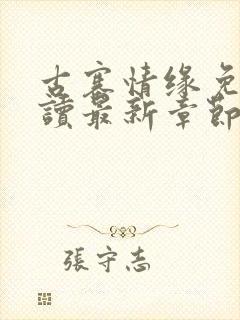 古寨情缘免
讀最新章節
張守志